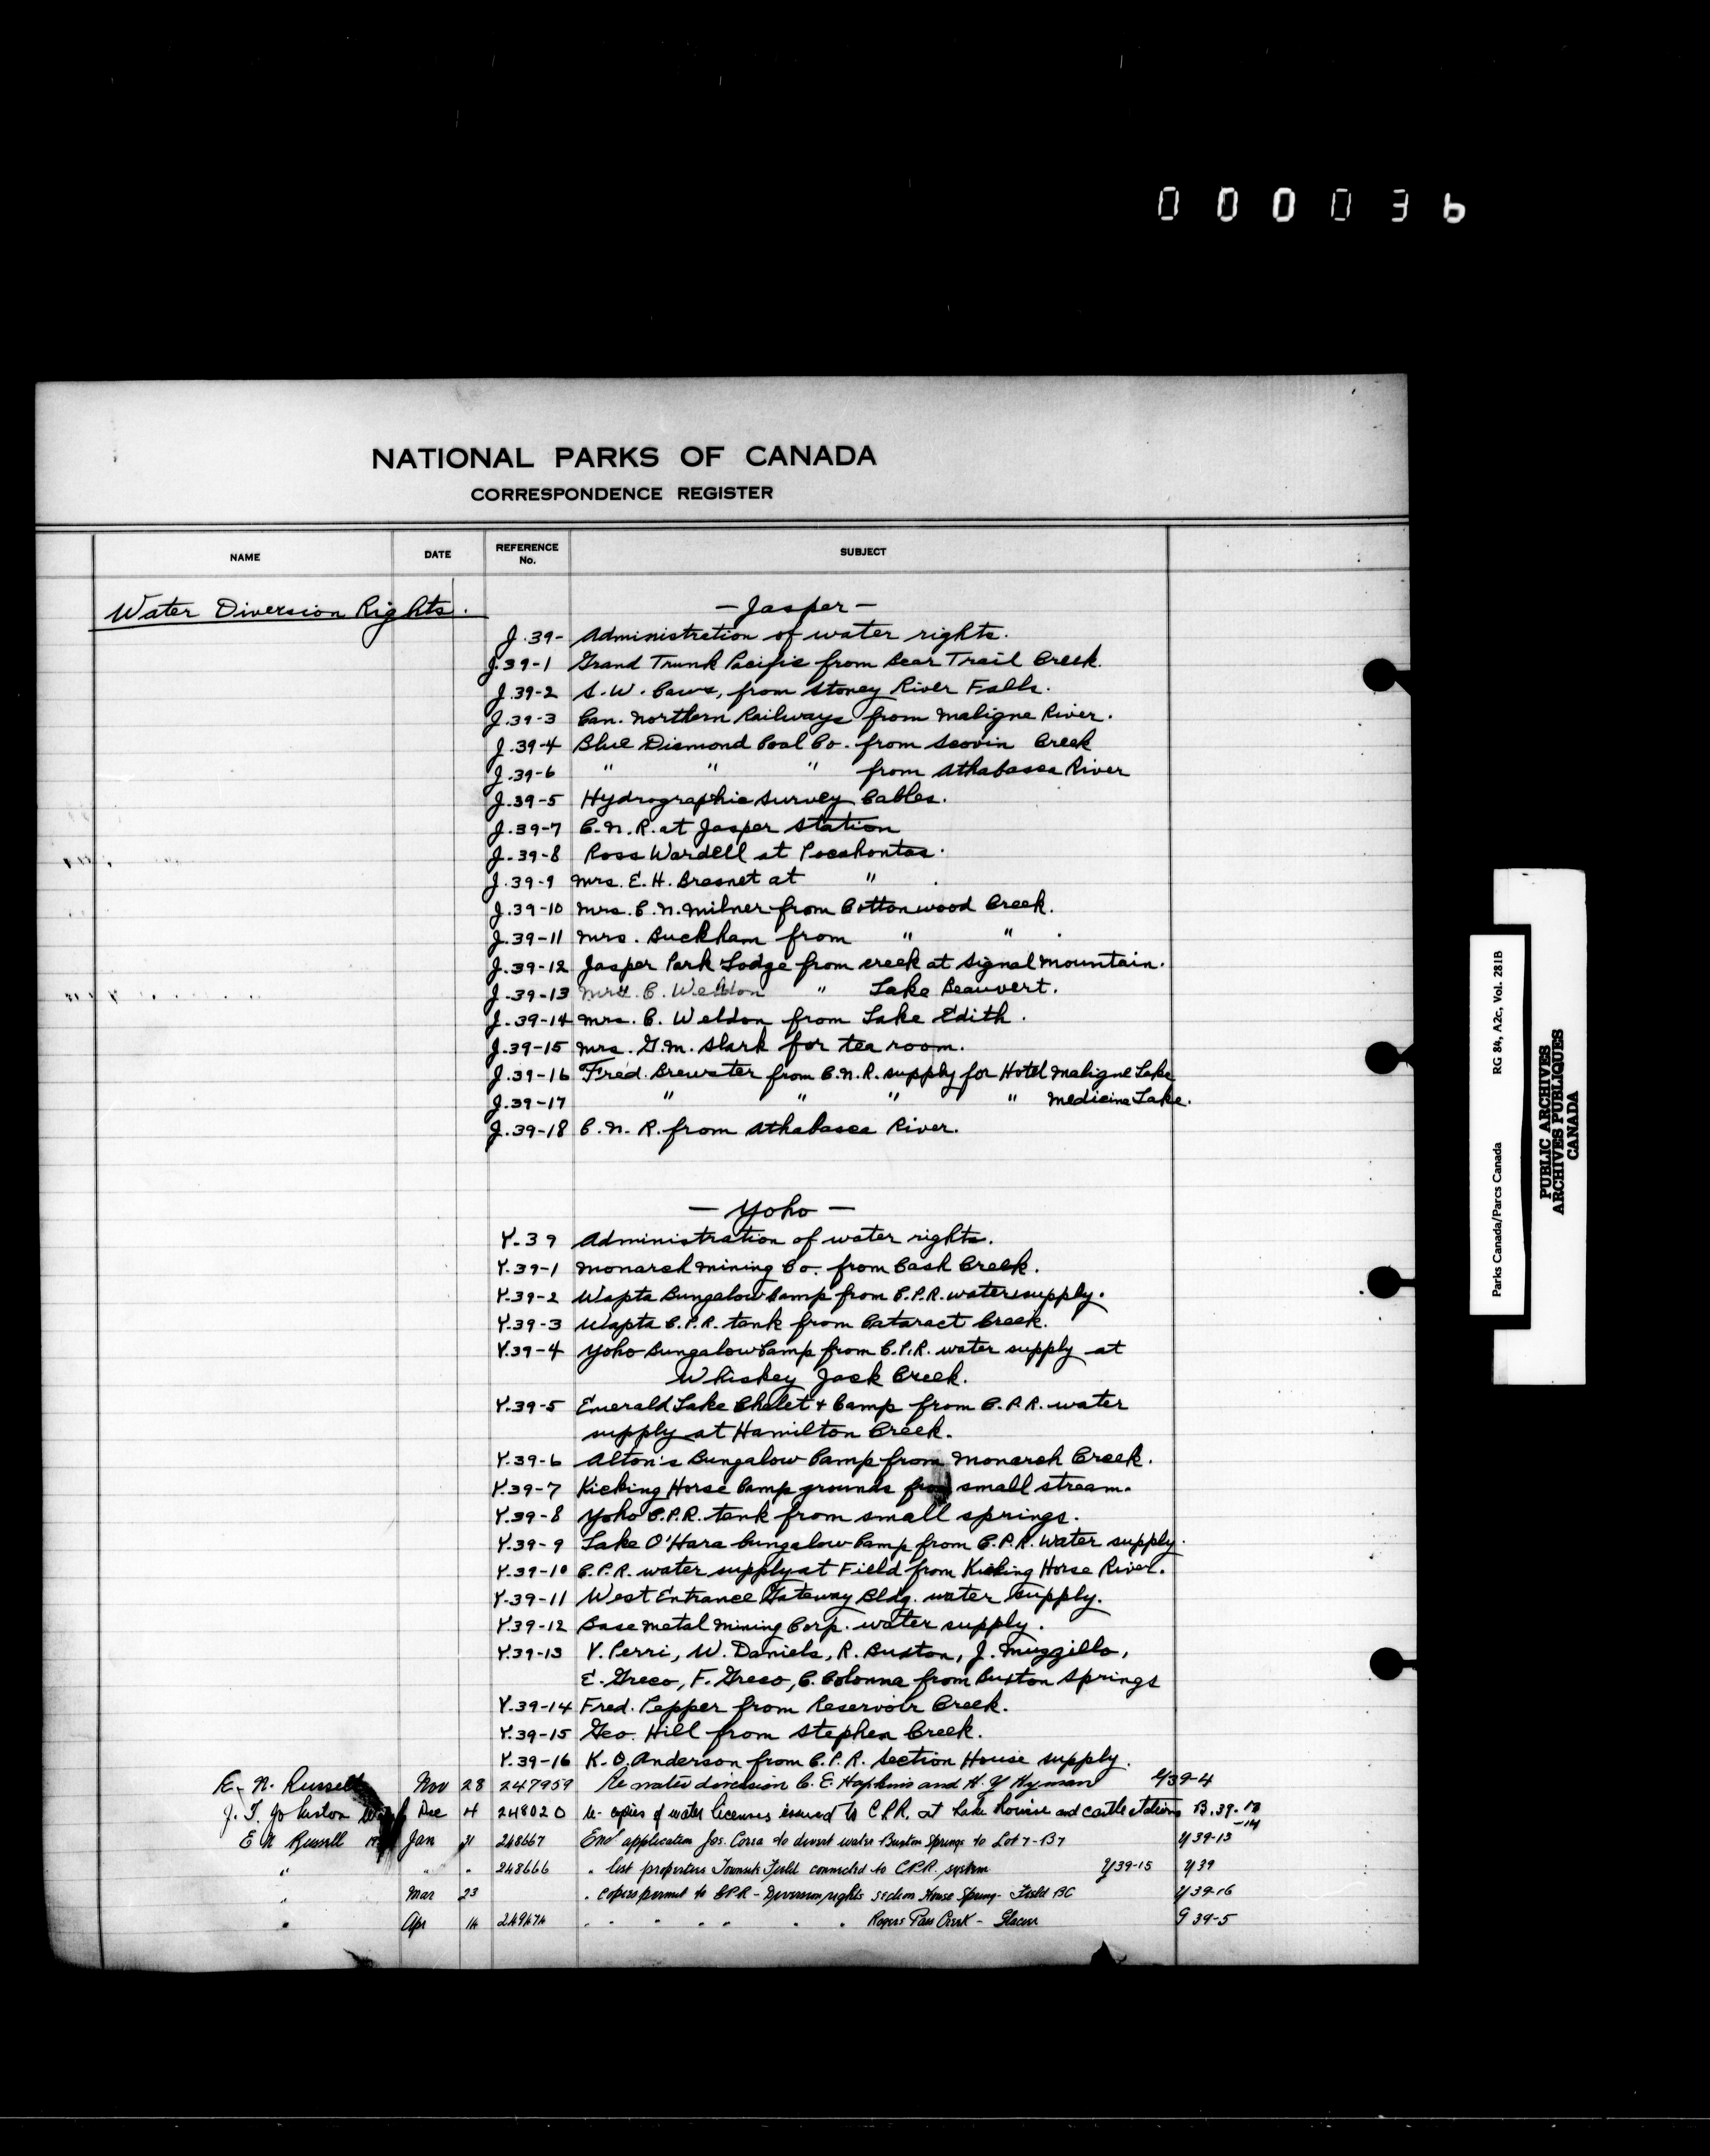 000036
NATIONAL PARKS OF CANADA
CORRESPONDENCE REGISTER
NAME DATE REFERENCE No. SUBJECT
Water Diversion Rights. — Jasper —
J.39- Administration of water rights.
J.39-1 Grand Trunk Pacific from Bear Trail Creek.
J.39-2 S.W. from Stoney River Falls.
J.39-3 Can. Northern Railways from Maligne River.
J.39-4 Blue Diamond Coal Co. from Scovin Creek
J.39-6 " " " from Athabasca River
J.39-5 Hydrographic Survey Cables.
J.39-7 C.N.R. at Jasper Station
J.39-8 Ross Wardell at Pocahontas.
J.39-9 Mrs. E.H. Bresnet at " .
J.39-10 Mrs. C.N. Milner from Cottonwood Creek.
J.39-11 Mrs. Buckham from " " .
J.39-12 Jasper Park Lodge from creek at Signal Mountain.
J.39-13 C. Weldon " Lake Beauvert.
J.39-14 Mrs. C. Weldon from Lake Edith.
J.39-15 Mrs. G.M. Slark for tea room.
J.39-16 Fred. Brewster from C.N.R. supply for Hotel Maligne Lake
J.39-17 " " " " Medicine Lake.
J.39-18 C.N.R. from Athabasca River.
— Yoho —
Y.39 Administration of water rights.
Y.39-1 Monarch Mining Co. from Cash Creek.
Y.39-2 Wapta Bungalow Camp from C.P.R. water supply.
Y.39-3 Wapta C.P.R. tank from Cataract Creek.
Y.39-4 Yoho Bungalow Camp from C.P.R. water supply at
Whiskey Jack Creek.
Y.39-5 Emerald Lake Chalet + Camp from C.P.R. water
supply at Hamilton Creek.
Y.39-6 Alton's Bungalow Camp from Monarch Creek.
Y.39-7 Kicking Horse Camp grounds from small stream.
Y.39-8 Yoho C.P.R. tank from small springs.
Y.39-9 Lake O'Hara bungalow Camp from C.P.R. water supply.
Y.39-10 C.P.R. water supply at Field from Kicking Horse River.
Y.39-11 West Entrance Gateway Bldg. water supply.
Y.39-12 Base Metal Mining Corp. water supply.
Y.39-13 V. Perri, W. Daniels, R. Buxton, J. Muzzillo,
E. Greco, F. Greco, C. Colonna from Buxton Springs
Y.39-14 Fred. Pepper from Reservoir Creek.
Y.39-15 Geo. Hill from Stephen Creek.
Y.39-16 K.O. Anderson from C.P.R. Section House supply.
E. N. Russell Nov 28 247959 Re water diversion C. E. Hopkins and H. Y Hyman Y39-4
J. T. Johnston Dec 4 248020 copies of water licenses issued to C.P.R. at Lake Louise and castle stations B.39-12 -14
E N Russell Jan 31 248667 Encl application Jos. Corra to divert water Buxton Springs to Lot 7-B7 Y39-13
" " " 248666 " list properties Townsite Field connected to C.P.R. system Y39-15 Y39
" Mar 23 " copies permit to CPR - Diversion rights section House Spring - Field BC Y39-16
" Apr 14 249474 " " " " " " " Rogers Pass Creek - Glacier G 39-5
Parks Canada/Parcs Canada RG 84, A2c, Vol. 281B
PUBLIC ARCHIVES
ARCHIVES PUBLIQUES
CANADA